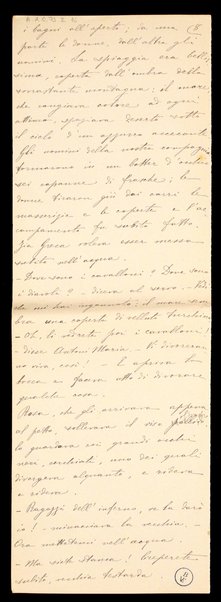 i bagni all'aperto; da una
parte le donne, dall'altra gli
uomini. La spiaggia era bellis-
sima, coperta dall'ombra della
sovrastante montagna; il mare,
che cangiava colore ad ogni
attimo, spaziava deserto sotto
il cielo d'un azzurro accecante.
Gli uomini della nostra compagnia
formarono in un batter d'occhio
sei capanne di frasche; le
donne tirarono giù dai carri le
masserizie e le coperte e l'ac-
campamento fu subito fatto.
Zia Greca voleva esser messa
subito nell'acqua.
— Dove sono i cavalloni? Dove sono
i diavoli? — diceva al servo. — Vedi
che mi hai ingannato: il mare sem-
bra una coperta di velluto turchino.
— Oh, li vedrete poi i cavalloni!
— disse Antoni Maria. — Vi divoreran-
no viva, così! — E apriva la
bocca e faceva atto di divorare
qualche cosa.
Rosa, che gli arrivava appena
al petto, sollevava il viso
lo guardava coi grandi occhi
neri, cerchiati, uno dei quali
divergeva alquanto, e rideva
e rideva.
— Ragazzi dell'inferno, ve la darò
io! — minacciava la vecchia. —
Ora mettetemi nell'acqua.
— Ma siete stanca! Creperete
subito, vecchia testarda.